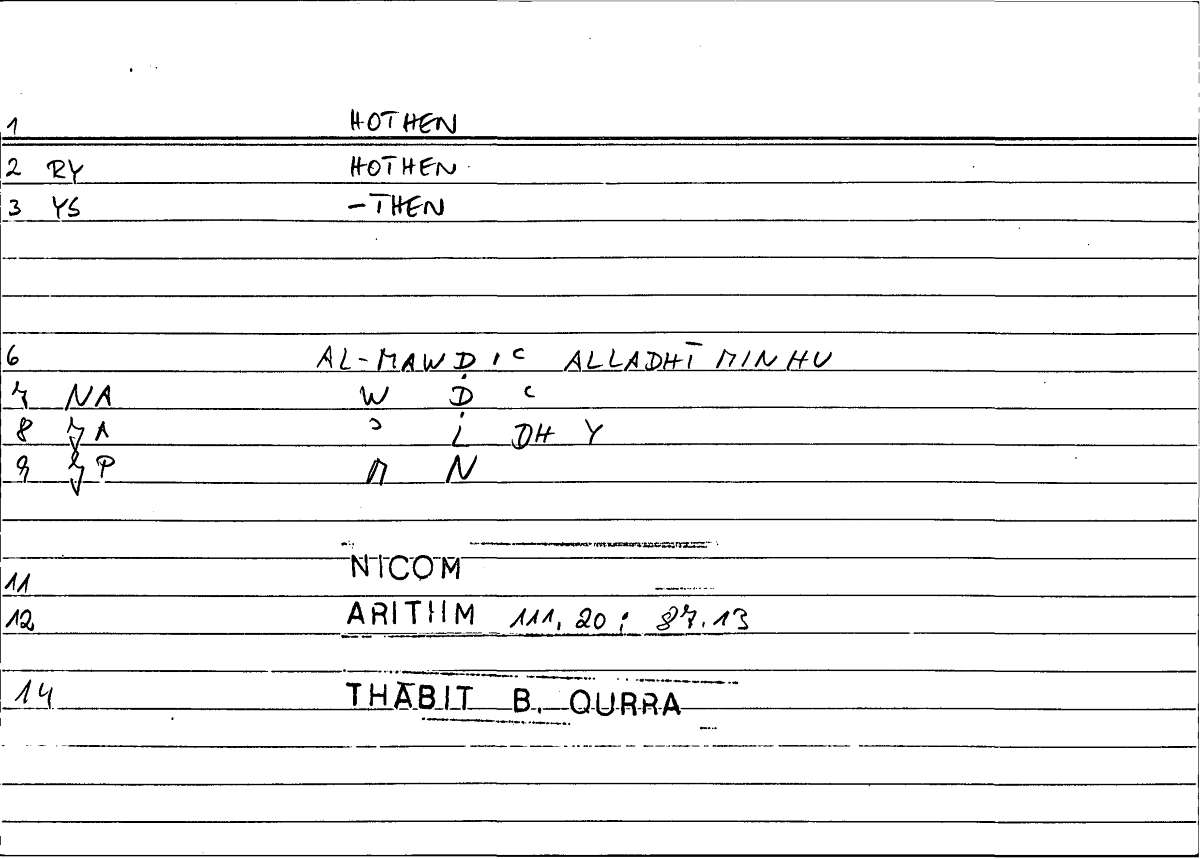 1 HOTHEN
2 RY HOTHEN
3 YS -THEN
6 AL-MAWḌIʿ ALLADHĪ MINHU
7 NA W Ḍ ʿ
8 A ʾ L DH Y
9 P M N
11 NICOM
12 ARITHM 111, 20 ; 87.13
14 THĀBIT B. QURRA